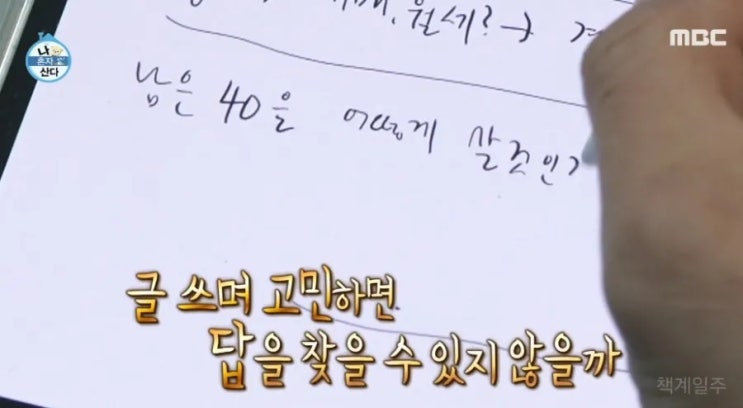 나 혼자 산다
MBC
월세? →
남은 40을 어떻게 살것인가
글 쓰며 고민하면
답을 찾을 수 있지 않을까
책계일주